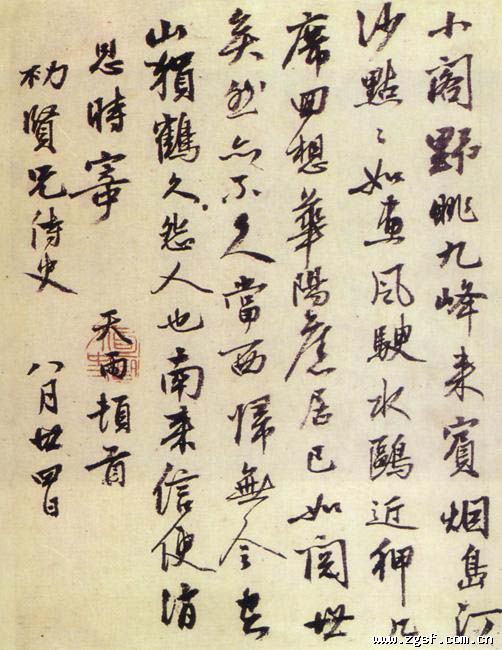 小閣野眺九峰来賓烟島汀
沙點〻如画風駛水鷗近狎几
席回想華陽舊居已如閱世
矣然亦不久當西歸無令
山猿鶴久怨人也南来信便消
息時寄 天雨頓首
賢兄侍史 八月廿四日
www.zgsf.com.cn